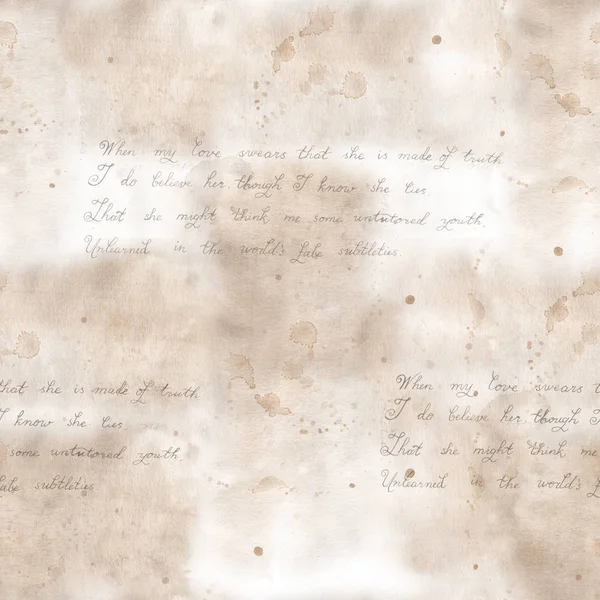 When my love swears that she is made of truth
I do believe her, though I know she lies.
That she might think me some untutored youth.
Unlearned in the world's false subtleties.
that she is made of truth
I know she lies.
some untutored youth.
false subtleties
When my love swears t
I do believe her, though I
That she might think me
Unlearned in the world's f